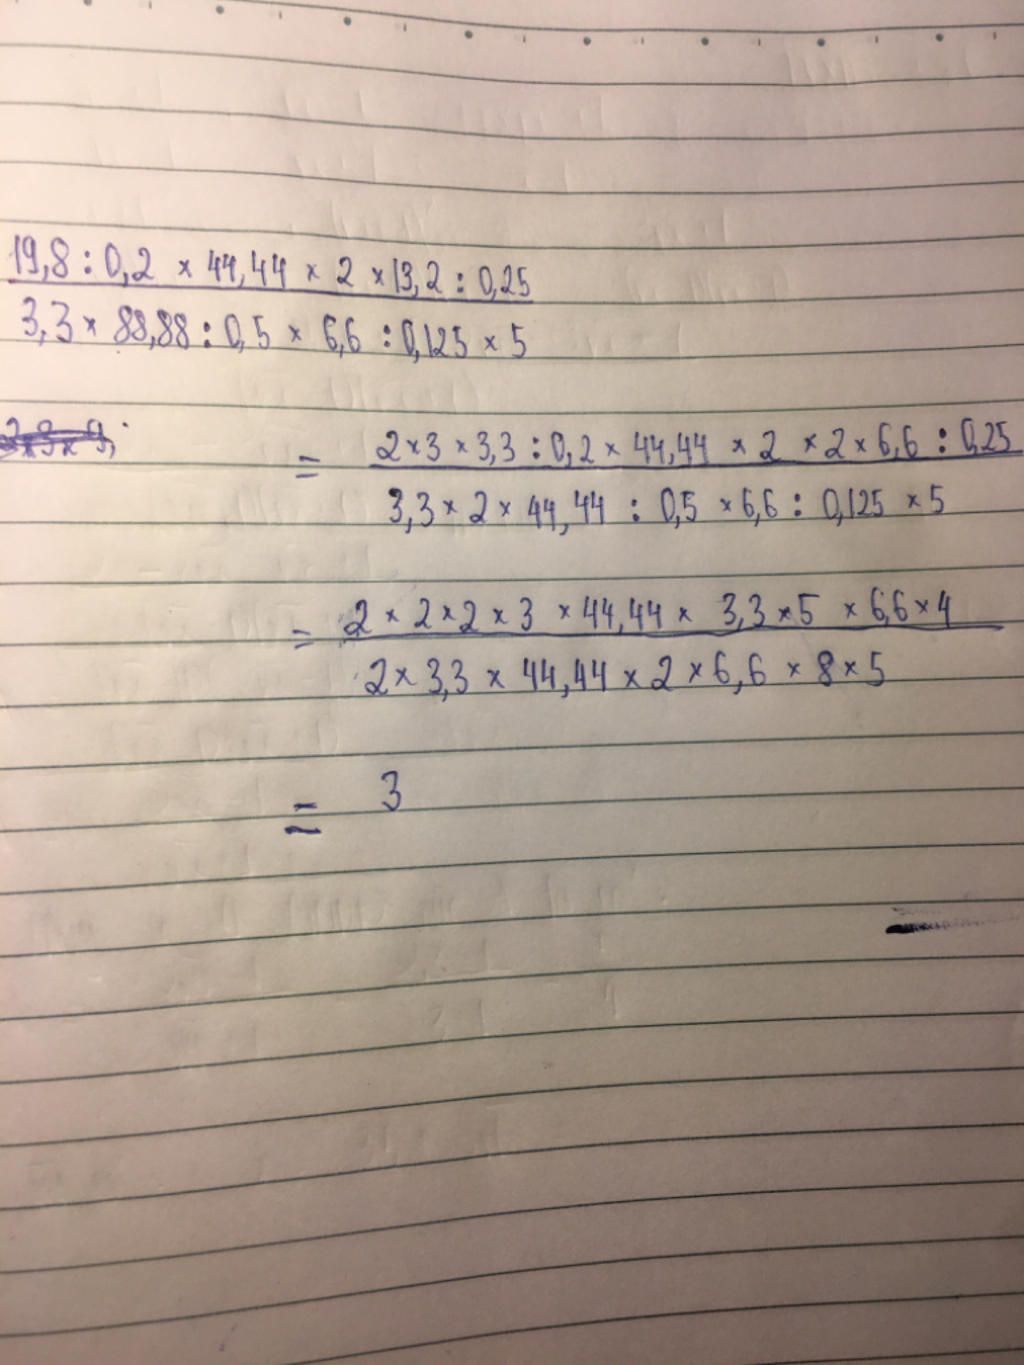 19,8 : 0,2 × 44,44 × 2 × 13,2 : 0,25
3,3 × 88,88 : 0,5 × 6,6 : 0,125 × 5
= 2 × 3 × 3,3 : 0,2 × 44,44 × 2 × 2 × 6,6 : 0,25
3,3 × 2 × 44,44 : 0,5 × 6,6 : 0,125 × 5
= 2 × 2 × 2 × 3 × 44,44 × 3,3 × 5 × 6,6 × 4
2 × 3,3 × 44,44 × 2 × 6,6 × 8 × 5
= 3